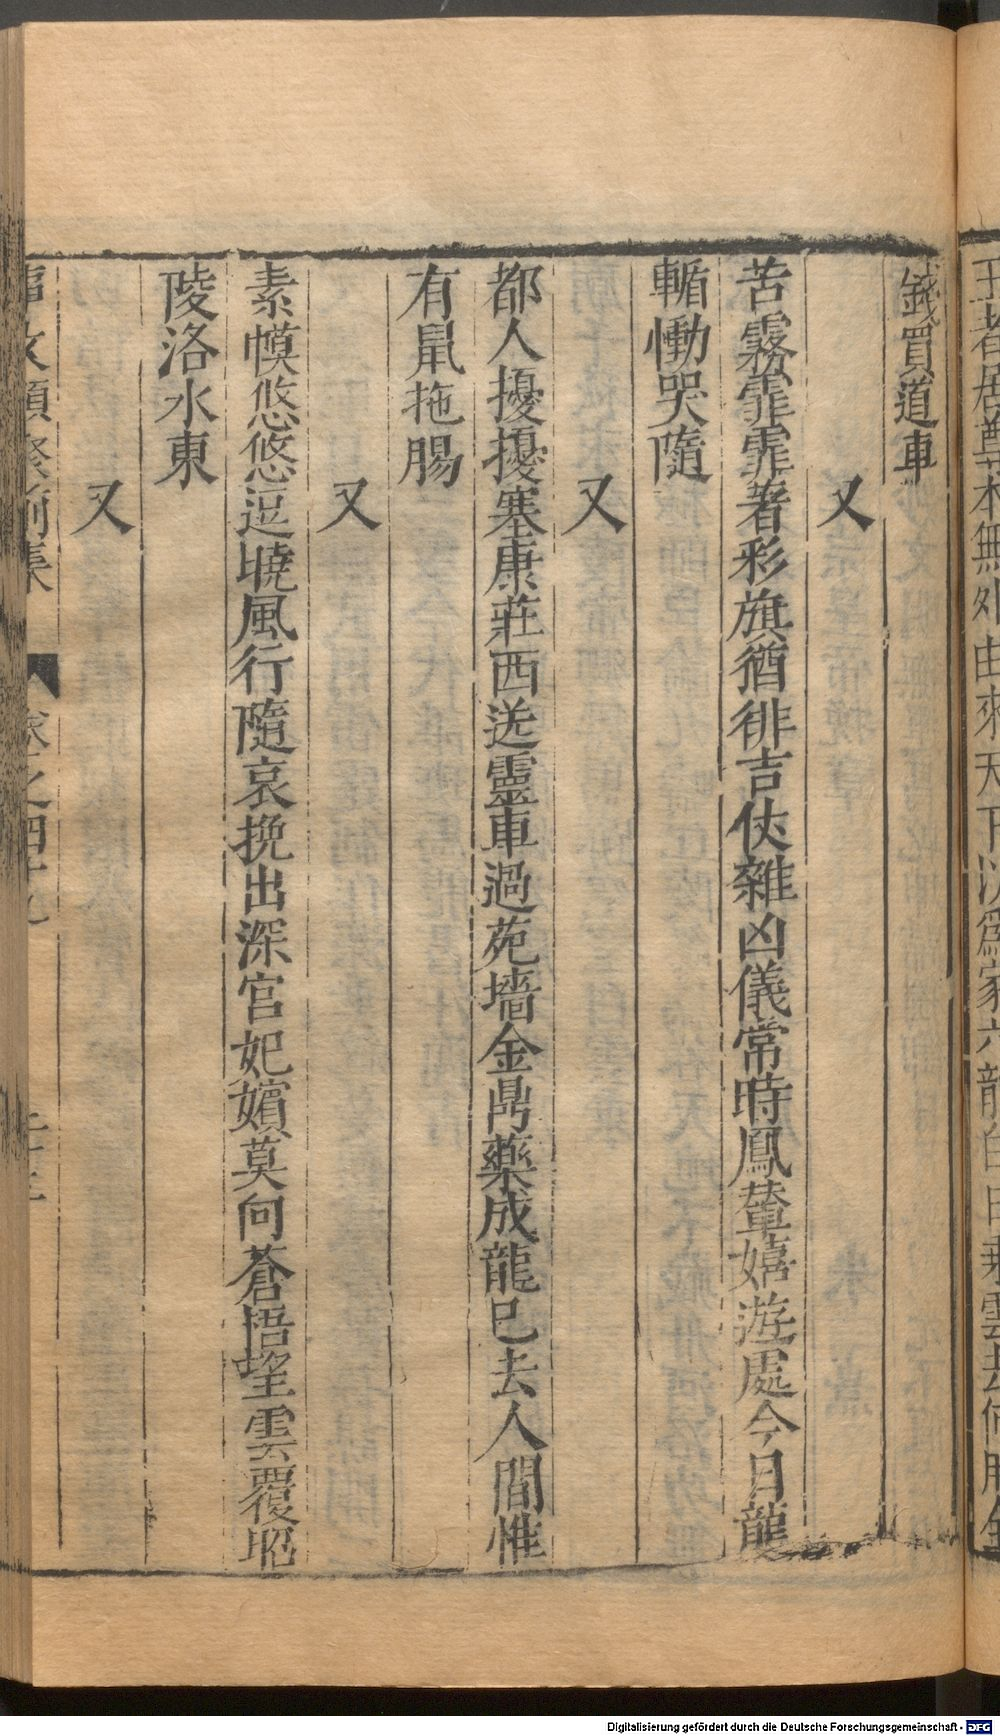 王者居尊本無外由來天下以爲家六龍白日乗雲去何用金
錢買道車
又
苦霧霏霏著彩旗猶徘吉仗雜凶儀常時鳳輦嬉遊處今日龍
輴慟哭隨
又
都人擾擾塞康莊西送靈車過苑墻金鼎藥成龍已去人間惟
有鼠拖腸
又
素幙悠悠逗曉風行隨哀挽出深宫妃嬪莫向蒼梧望雲覆昭
陵洛水東
又
事文類聚前集 卷之四十九
Digitalisierung gefördert durch die Deutsche Forschungsgemeinschaft - DFG